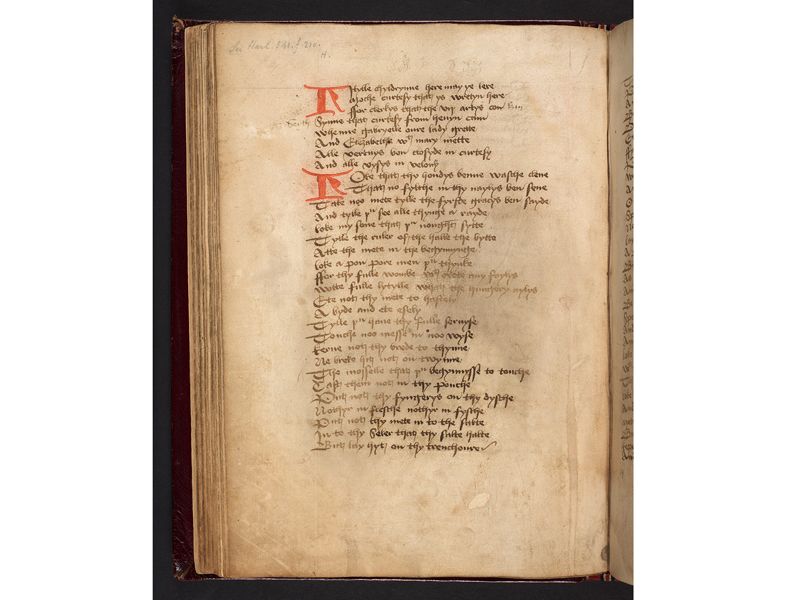 See Harl. 541. f. 210.
H.
Lytylle chyldrynne here may ye lere
Moche curtesy that ys wrytyn here
ffor clerkys that the vij artys con
Synne that curtesy from hevyn cam
Whenne gabryelle oure lady grette
And Elezabeth wt mary mette
Alle vertuys ben closyde in curtesy
And alle vysys in velony
Loke that thy hondys benne wasche clene
That no fylthe in thy naylys ben sene
Take noo mete tylle the fyrste graeys ben sayde
And tylle pu see alle thynge a rayde
loke my sone that pu nought sytte
Tylle the ruler of the halle the bytte
Atte the mete in the begynnynge
loke a pon pore men pu thynke
ffor thy fulle wombe
Wotte fulle lytylle what the hungery aylys
Ete not thy mete to hastely
A byde and ete esely
Tylle pu have thy fulle servyse
Touche noo messe in noo wyse
kerve not thy brede to thynne
Ne breke hit not on twynne
The mosselle that pu begynnysse to touche
Cast them not in thy pouche
Put not thy fyngerys on thy dysche
Nothyr in flesche nothyr in fysche
Put not thy mete in to the salte
In to thy seler that thy salte halte
But lay hyt on thy trenchoure